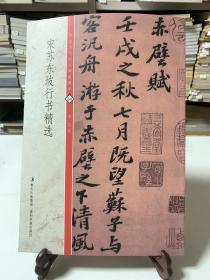 赤壁賦
壬戌之秋七月既望蘇子與
客汎舟游于赤壁之下清風
宋苏东坡行书精选